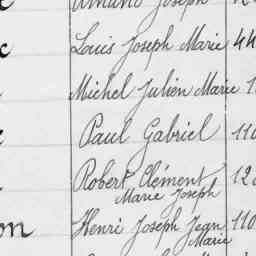 Armand Joseph
Louis Joseph Marie 44
Michel Julien Marie 1
Paul Gabriel 110
Robert Clément 12
Marie Joseph
on Henri Joseph Jean 110
Marie